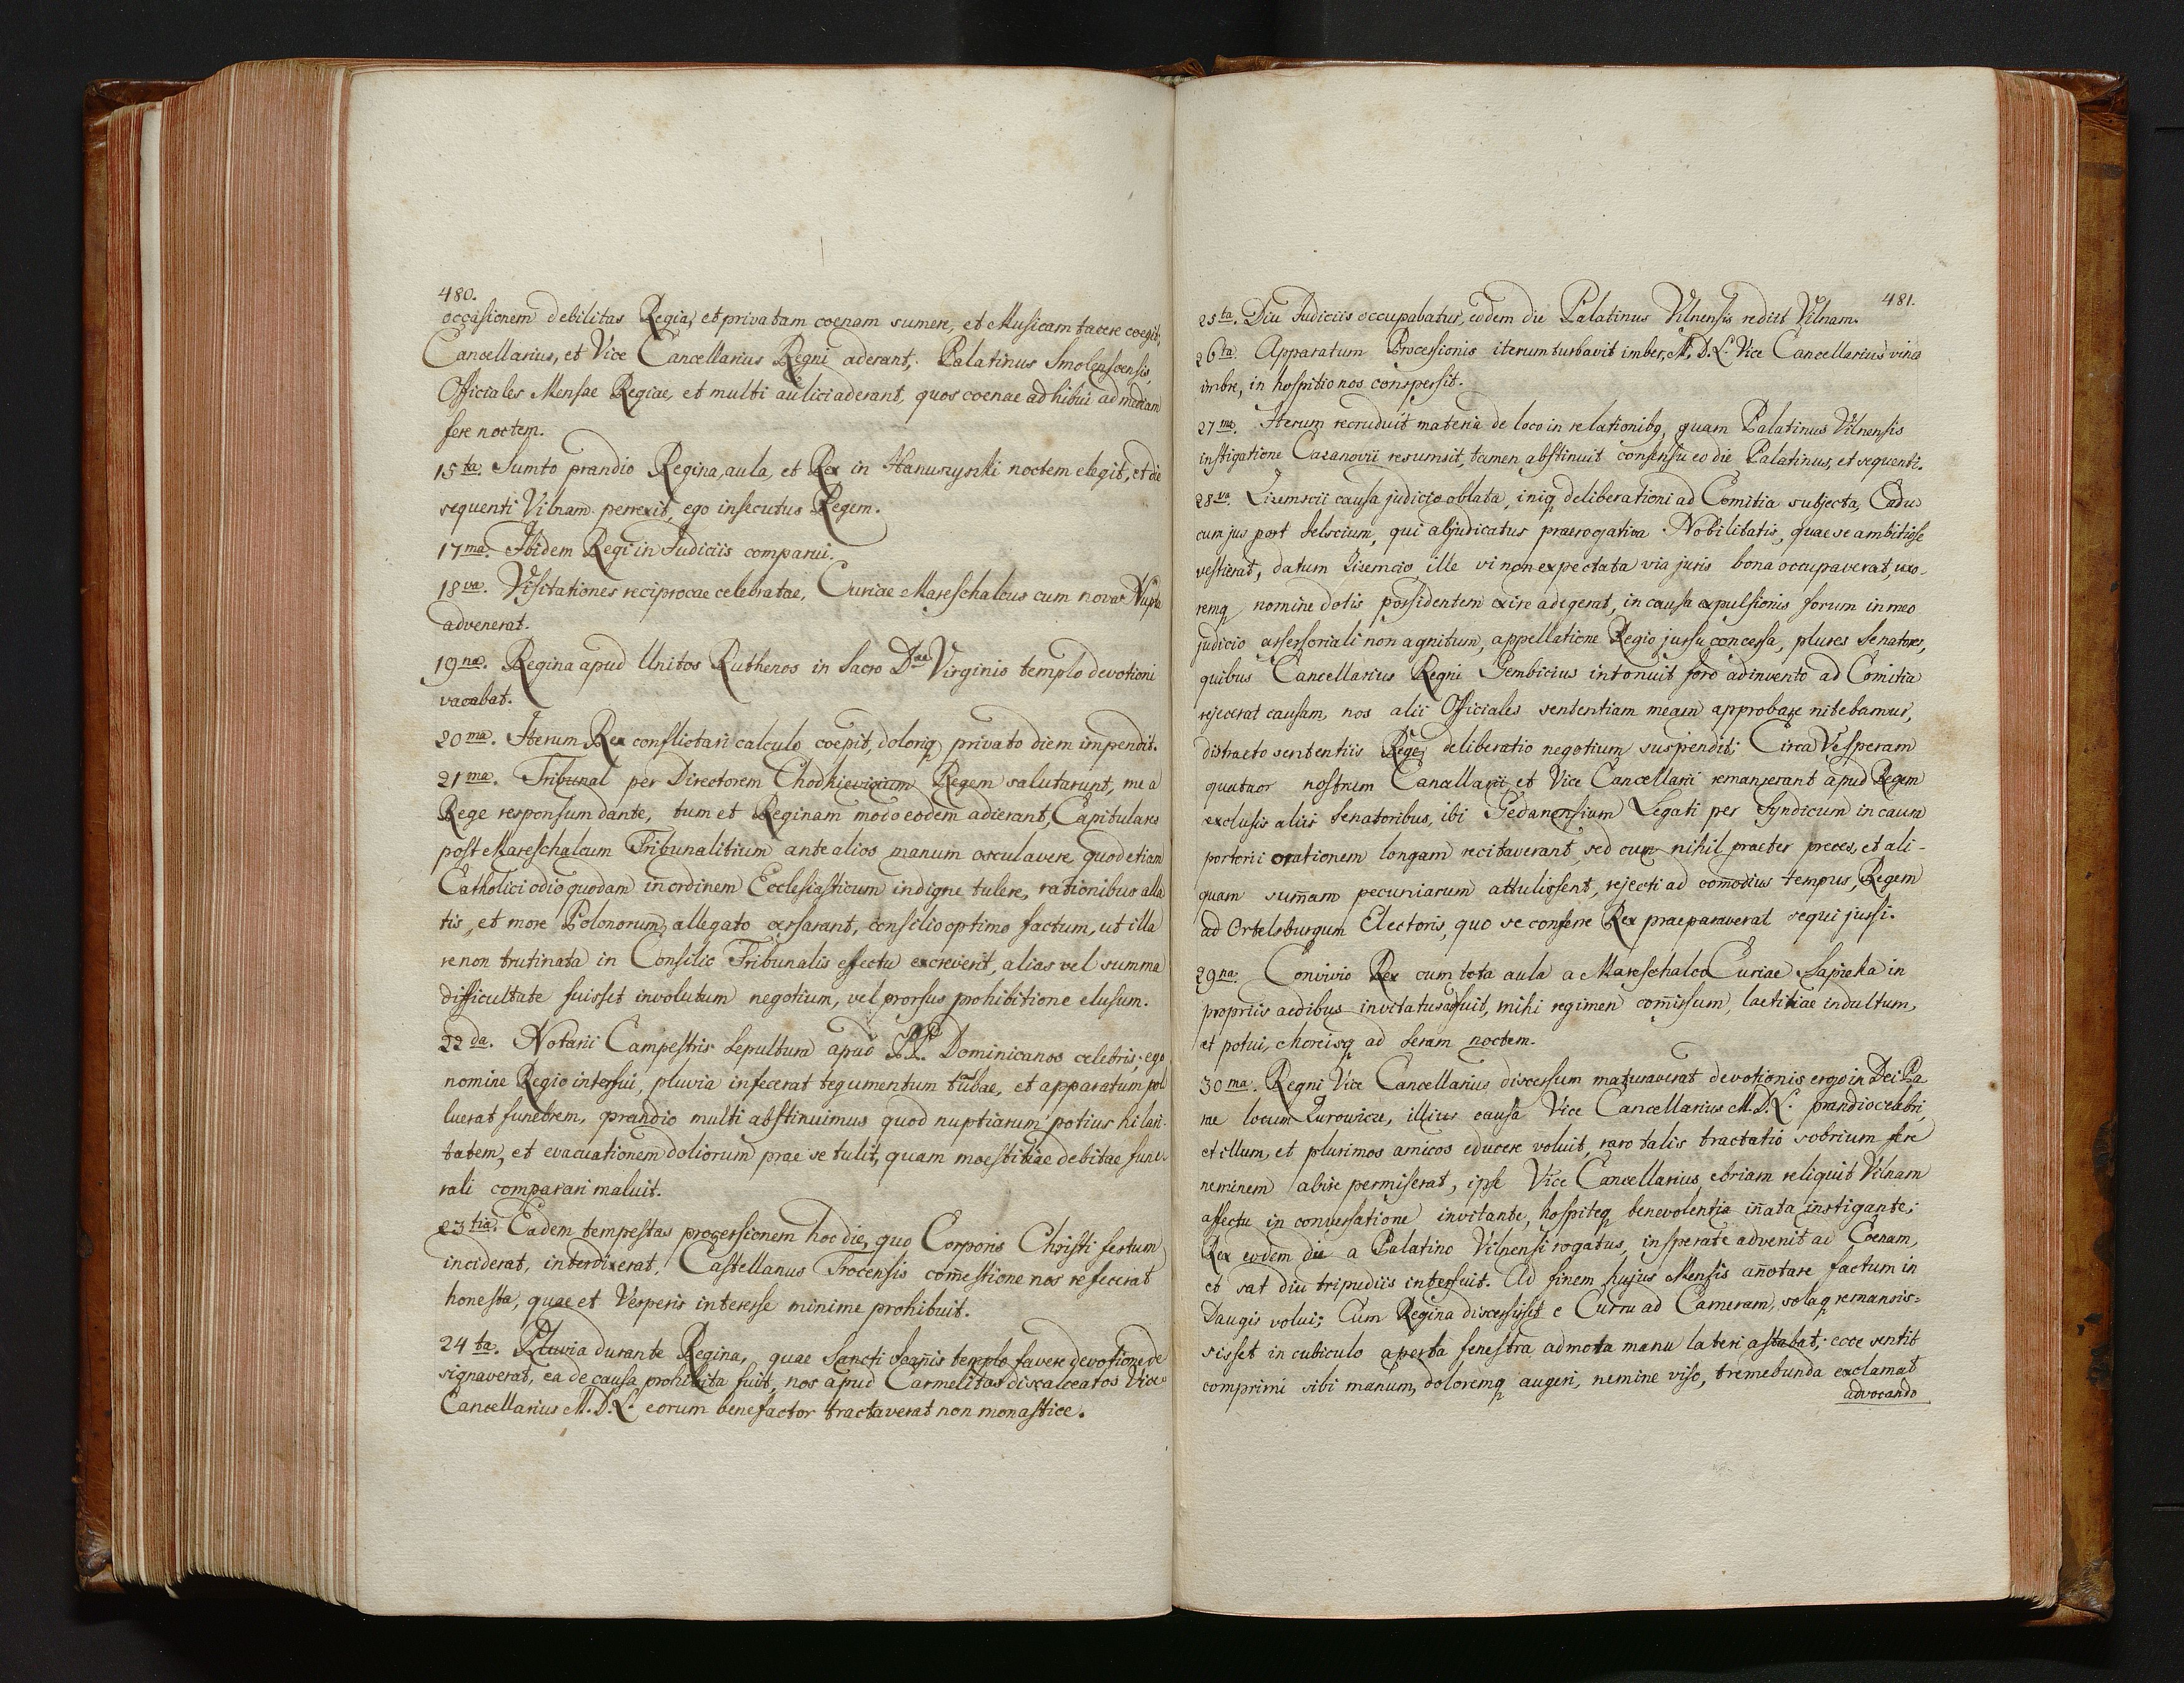 480.
occasionem debilitas Regia, et privatam coenam sumere, et Musicam tacere coegit,
Cancellarius, et Vice Cancellarius Regni aderant, Palatinus Smolenscensis,
Officiales Mensae Regiae, et multi aulici aderant, quos coenae adhibui ad mediam
fere noctem.
15ta. Sumto prandio Regina, aula, et Rex in Hanuszyszki noctem elegit, et die
sequenti Vilnam perrexit, ego insecutus Regem.
17ma. Ibidem Regi in Judiciis comparui.
18va. Visitationes reciprocae celebratae, Curiae Mareschalcus cum nova Nupta
advenerat.
19na. Regina apud Unitos Ruthenos in Sacro Dae Virginis templo devotioni
vacabat.
20ma. Iterum Rex conflictari calculo coepit, doloriq privato diem impendit.
21ma. Tribunal per Directorem Chodkievicium Regem salutarunt, me a
Rege responsum dante, tum et Reginam modo eodem adierant, Capitulares
post Mareschalcum Tribunalitium ante alios manum osculavere quod etiam
Catholici odio quodam in ordinem Ecclesiasticum indigne tulere, rationibus alla
tis, et more Polonorum allegato cessarant, consilio optimo factum, ut illa
re non trutinata in Consilio Tribunalis effectu excreverit, alias vel summa
difficultate fuisset involutum negotium, vel prorsus prohibitione elusum.
22da. Notarii Campestris Sepultura apud PP. Dominicanos celebris, ego
nomine Regio interfui, pluvia infecerat tegumentum tubae, et apparatum pol
luerat funebrem, prandio multi abstinuimus quod nuptiarum potius hilari-
tatem, et evacuationem doliorum prae se tulit, quam moestitiae debitae fune-
rali comparari maluit.
23tia. Eadem tempestas processionem hoc die, quo Corporis Christi festum
inciderat, interdixerat, Castellanus Trocensis comestione nos refecerat
honesta, quae et Vesperis interesse minime prohibuit.
24ta. Pluvia durante Regina, quae Sancti Joannis templo favere devotione de
signaverat, ea de causa prohibita fuit, nos apud Carmelitas discalceatos Vice
Cancellarius M. D. L. eorum benefactor tractaverat non monastice.
481.
25ta. Diu Judiciis occupabatur, eodem die Palatinus Vilnensis rediit Vilnam.
26ta. Apparatum Processionis iterum turbavit imber, M. D. L. Vice Cancellarius vina
imbre, in hospitio nos conspersit.
27ma. Iterum recruduit materia de loco in relationibq, quam Palatinus Vilnensis
instigatione Cazanovii resumsit, tamen abstinuit consensu eo die Palatinus, et sequenti.
28va. Lizemscii causa judicio oblata, iniq deliberationi ad Comitia subjecta, Cadu
cum jus post Selscium, qui abjudicatus praerogativa Nobilitatis, quae se ambitiose
vestierat, datum Lizemcio, ille vi non expectata via juris bona occupaverat, uxo-
remq nomine dotis possidentem exire adegerat, in causa expulsionis forum in meo
judicio assessoriali non agnitum, appellatione Regio jussu concessa, plures Senatores,
quibus Cancellarius Regni Gembicius intonuit foro adinvento ad Comitia
rejecerat causam, nos alii Officiales sententiam meam approbare nitebamur,
distracto sententiis Rege, deliberatio negotium suspendit; Circa Vesperam
quatuor nostrum Cancellarii, et Vice Cancellarii remanserant apud Regem
exclusis aliis Senatoribus, ibi Gedanensium Legati per Syndicum in causa
portorii orationem longam recitaverant, sed cum nihil praeter preces, et ali-
quam sumam pecuniarum attulissent, rejecti ad comodius tempus, Regem
ad Ortelsburgum Electoris, quo se conferre Rex praeparaverat sequi jussi.
29na. Convivio Rex cum tota aula a Mareschalco Curiae Sapieha in
propriis aedibus invitatus adfuit, mihi regimen comissum, laetitiae indultum,
et potui, choreisq ad seram noctem.
30ma. Regni Vice Cancellarius discessum maturaverat devotionis ergo in Dei Pa
rae locum Zurowice, illius causa Vice Cancellarius M. D. L. prandio celebri,
et illum, et plurimos amicos educere voluit, raro talis tractatio sobrium fere
neminem abire permiserat, ipse Vice Cancellarius ebriam reliquit Vilnam
affectu in conversatione invitante, hospiteq benevolentia inata instigante;
Rex eodem die a Palatino Vilnensi rogatus, insperate advenit ad Coenam,
et sat diu tripudiis interfuit. Ad finem hujus Mensis anotare factum in
Daugis volui; Cum Regina discessisset e Curru ad Cameram, solaq remansis-
sisset in cubiculo aperta fenestra admota manu lateri astabat; ecce sentit
comprimi sibi manum, doloremq augeri, nemine viso, tremebunda exclamat
advocando